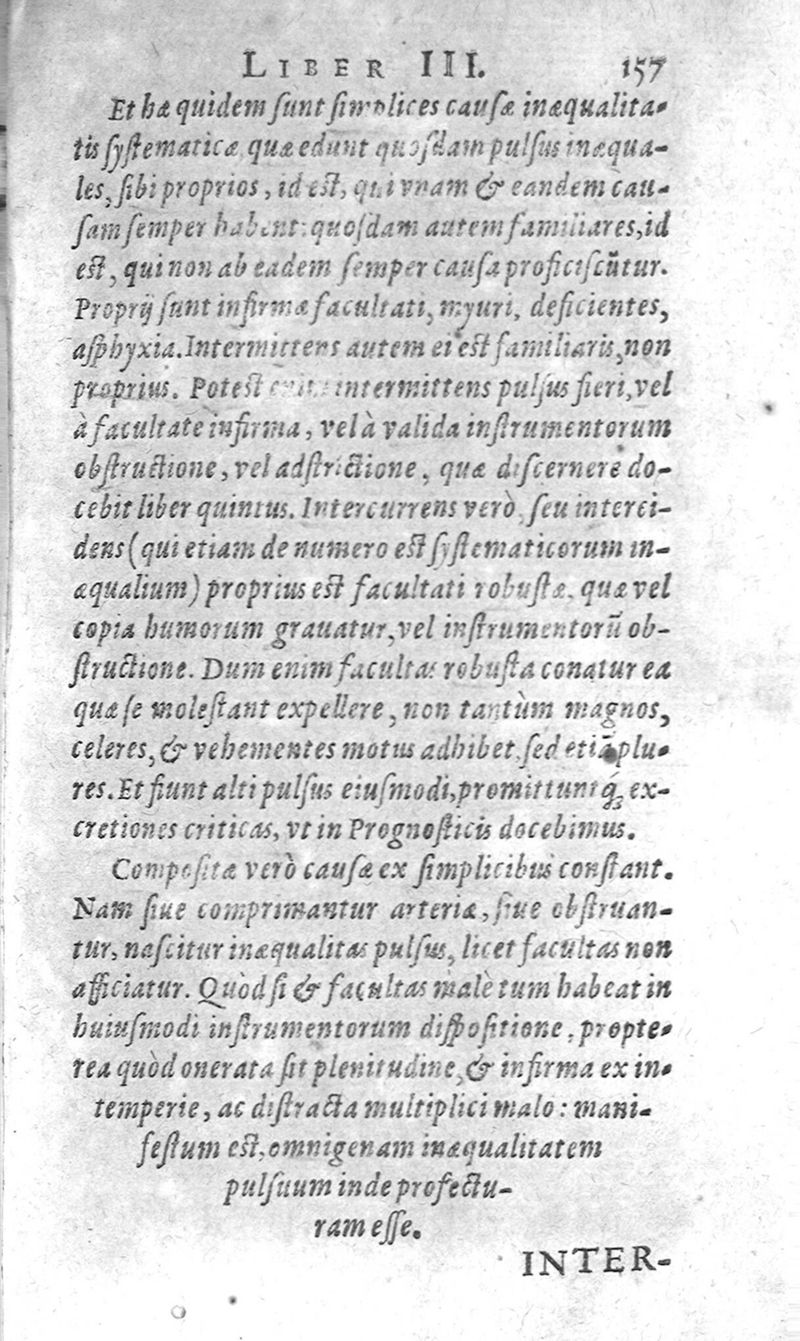 LIBER III. 157
Et hæ quidem ſunt ſimplices cauſæ inæqualita-
tis ſyſtematicæ quæ edunt quoſdam pulſus inæqua-
les, ſibi proprios, id eſt, qui vnam & eandem cau-
ſam ſemper habent: quoſdam autem familiares, id
eſt, qui non ab eadem ſemper cauſa proficiſcūtur.
Proprij ſunt infirmæ facultati, myuri, deficientes,
aſphyxia. Intermittens autem ei eſt familiaris, non
proprius. Poteſt intermittens pulſus fieri, vel
à facultate infirma, vel à valida inſtrumentorum
obſtructione, vel adſtrictione, quæ diſcernere do-
cebit liber quintus. Intercurrens verò, ſeu interci-
dens (qui etiam de numero eſt ſyſtematicorum in-
æqualium) proprius eſt facultati robuſtæ, quæ vel
copia humorum grauatur, vel inſtrumentorū ob-
ſtructione. Dum enim facultas robuſta conatur ea
quæ ſe moleſtant expellere, non tantùm magnos,
celeres, & vehementes motus adhibet, ſed etiā plu-
res. Et fiunt alti pulſus eiuſmodi, promittuntq́; ex-
cretiones criticas, vt in Prognoſticis docebimus.
Compoſitæ verò cauſæ ex ſimplicibus conſtant.
Nam ſiue comprimantur arteriæ, ſiue obſtruan-
tur, naſcitur inæqualitas pulſus, licet facultas non
afficiatur. Quòd ſi & facultas malè tum habeat in
huiuſmodi inſtrumentorum diſpoſitione, propte-
rea quòd onerata ſit plenitudine, & infirma ex in-
temperie, ac diſtracta multiplici malo: mani-
feſtum eſt, omnigenam inæqualitatem
pulſuum inde profectu-
ram eſſe.
INTER-